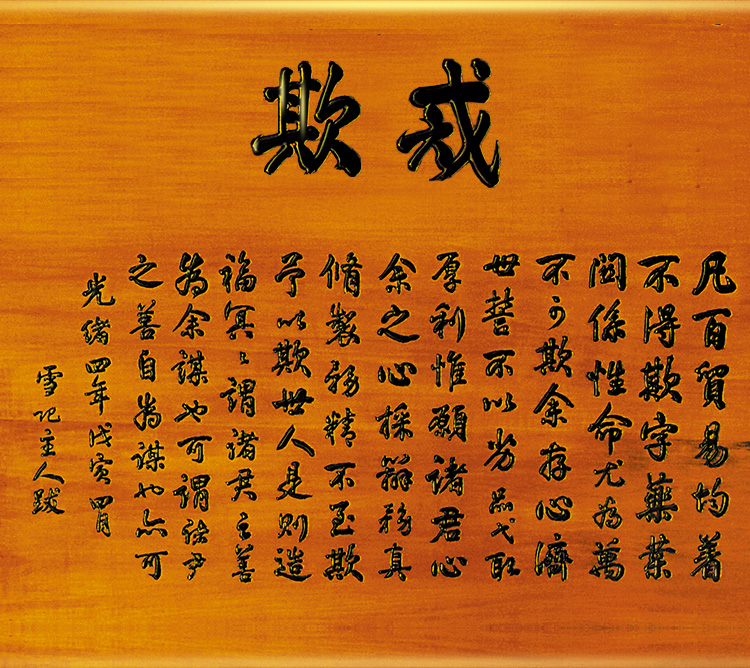 戒欺
凡百貿易均着
不得欺字藥業
關係性命尤為萬
不可欺余存心濟
世誓不以劣品弋取
厚利惟願諸君心
余之心採辦務真
脩製務精不至欺
予以欺世人是則造
福冥〻謂諸君之善
為余謀也可謂諸君
之善自為謀也亦可
光緒四年戊寅四月
雪記主人跋